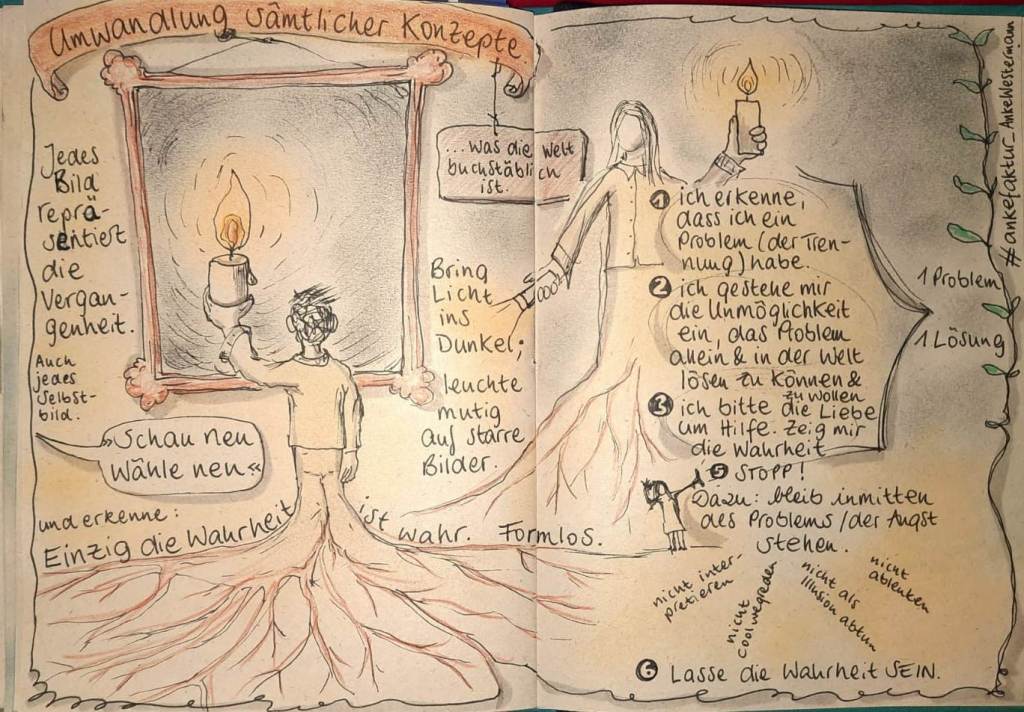 Umwandlung sämtlicher Konzepte.
...was die Welt
buchstäblich
ist.
Jedes
Bild
reprä-
sentiert
die
Vergan-
genheit.
Auch
jedes
Selbst-
bild.
»Schau neu
Wähle neu«
und erkenne:
Einzig die Wahrheit ist wahr. Formlos.
Bring
Licht
ins
Dunkel;
leuchte
mutig
auf starre
Bilder.
1 ich erkenne,
dass ich ein
Problem (der Tren-
nung) habe.
2 ich gestehe mir
die Unmöglichkeit
ein, das Problem
allein & in der Welt
lösen zu können &
zu wollen
3 ich bitte die Liebe
um Hilfe. Zeig mir
die Wahrheit
5 STOPP!
Dazu: bleib inmitten
des Problems/der Angst
stehen.
nicht inter-
pretieren
nicht
coolwegreden
nicht als
Illusion abtun
nicht
ablenken
6 Lasse die Wahrheit SEIN.
1 Problem
1 Lösung
#ankefaktur_AnkeWestermann